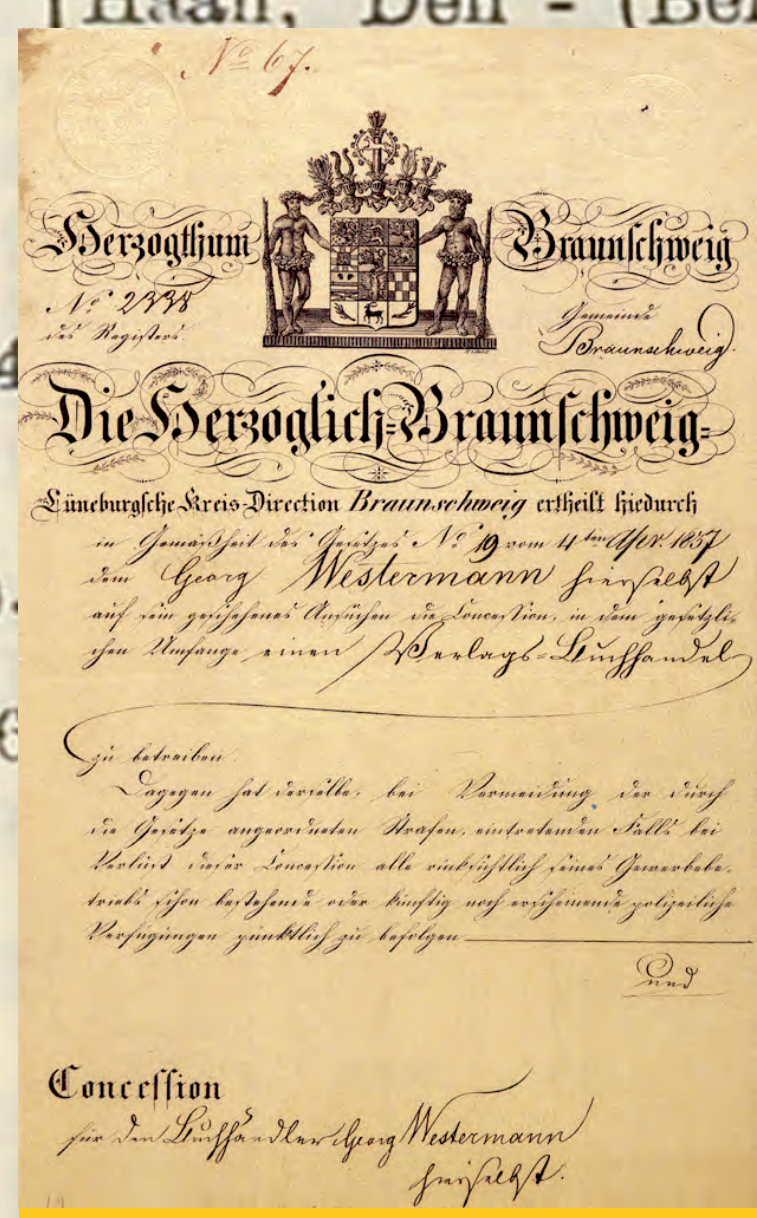 (Haan, Den - (Be
No 67.
Herzogthum Braunschweig
No 2338
des Registers.
Gemeinde
Braunschweig.
Die Herzoglich-Braunschweig-
Lüneburgsche Kreis-Direction Braunschweig ertheilt hiedurch
in Gemäßheit des Gesetzes No 19 vom 4ten Apr. 1837
dem Georg Westermann hierselbst
auf sein geschehenes Ansuchen die Concession, in dem gesetzli-
chen Umfange einen Verlags-Buchhandel
zu betreiben.
Dagegen hat derselbe, bei Vermeidung der durch
die Gesetze angeordneten Strafen, eintretenden Falls bei
Verlust dieser Concession alle rücksichtlich seines Gewerbebe-
triebs schon bestehende oder künftig noch erscheinende polizeiliche
Verfügungen pünktlich zu befolgen
und
Concession
für den Buchhändler Georg Westermann
hierselbst.